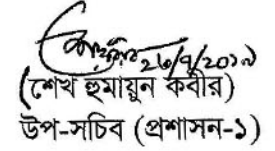 ২৬/৭/২০১৭
(শেখ হুমায়ুন কবীর)
উপ-সচিব (প্রশাসন-১)